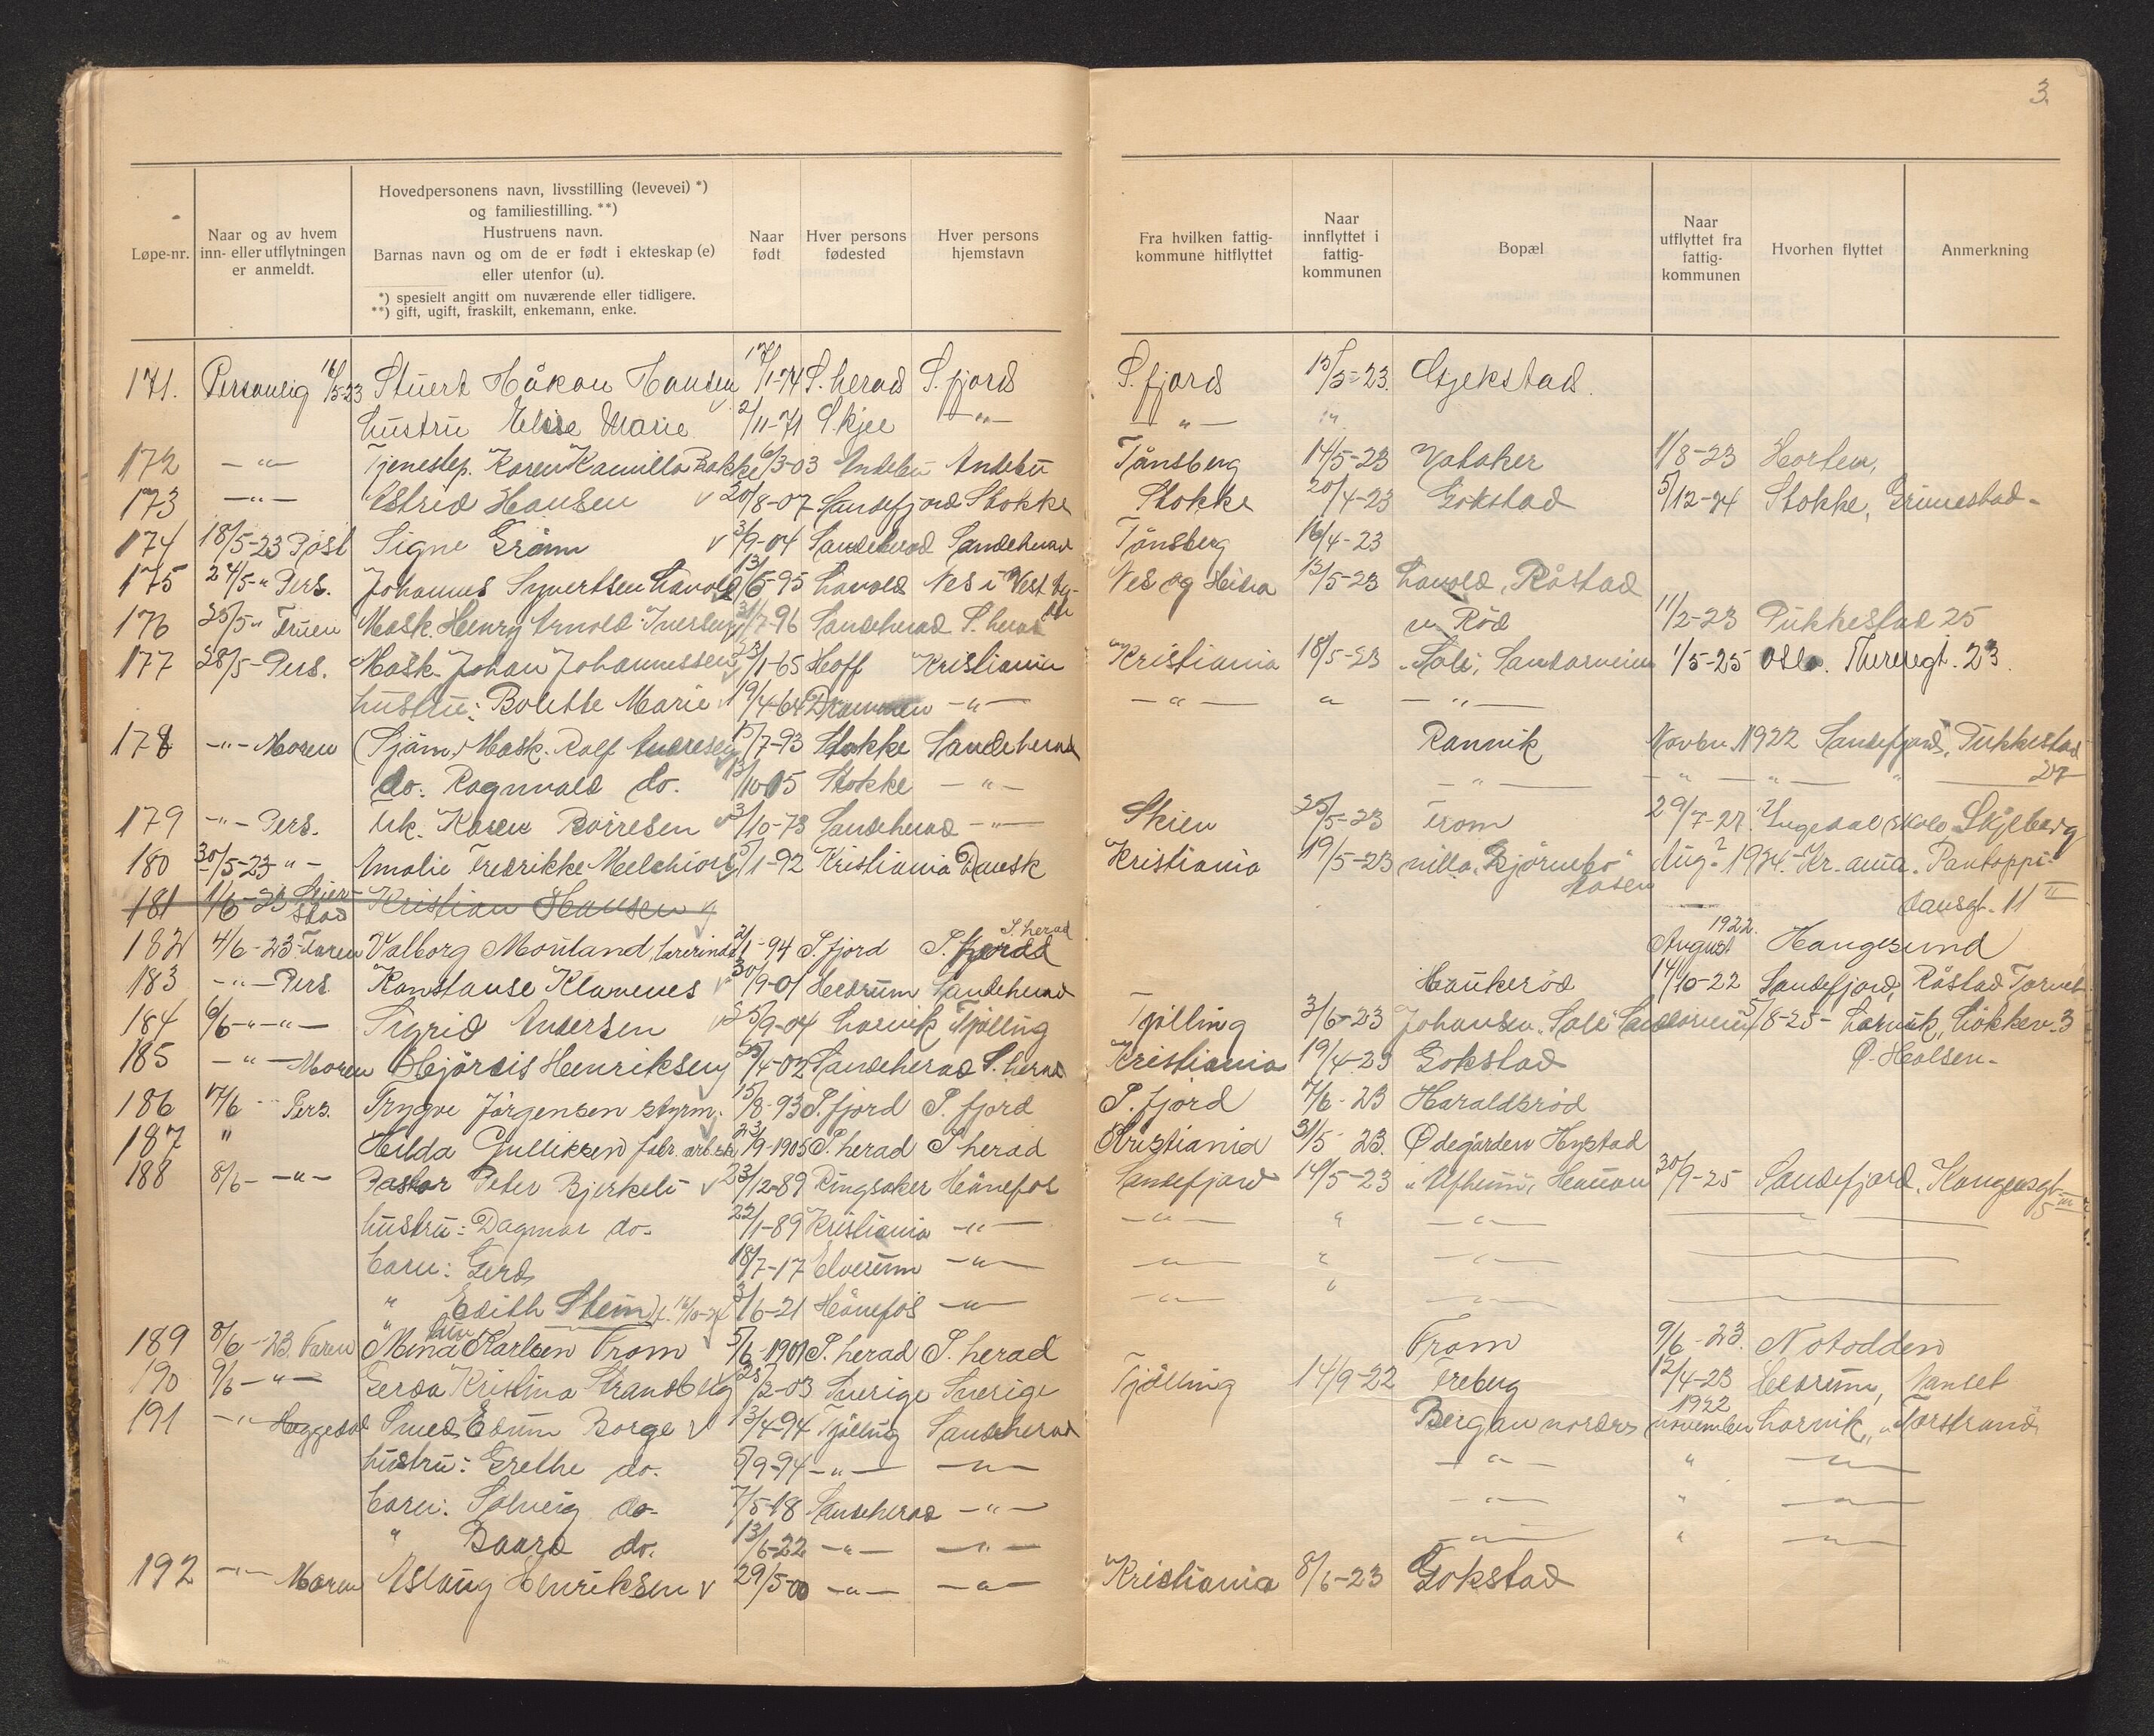 3.
Løpe-nr. | Naar og av hvem inn- eller utflytningen er anmeldt. | Hovedpersonens navn, livsstilling (levevei) *) og familiestilling. **) Hustruens navn. Barnas navn og om de er født i ekteskap (e) eller utenfor (u). *) spesielt angitt om nuværende eller tidligere. **) gift, ugift, fraskilt, enkemann, enke. | Naar født | Hver persons fødested | Hver persons hjemstavn | Fra hvilken fattigkommune hitflyttet | Naar innflyttet i fattigkommunen | Bopæl | Naar utflyttet fra fattigkommunen | Hvorhen flyttet | Anmerkning
171. Personlig 16/5-23 Stuert Håkon Hansen 17/1-74 S. herad S. fjord S. fjord 15/5-23. Gjekstad.
hustru Elise Marie 2/11-71 Skjee -"- -"- "
172 -"- Tjenestep. Karen Kamilla Bakke 6/3-03 Andebu Andebu Tønsberg 14/5-23 Vataker 1/8-23 Horten,
173 -"- Astrid Hansen v 20/8-07 Sandefjord Stokke Stokke 20/4-23 Gokstad 5/12-24 Stokke, Grimestad-
174 18/5-23 Post Signe Grønn v 3/9-04 Sandeherad Sandeherad Tønsberg 16/4-23
175 24/5-" Pers. Johannes Syvertsen Lavold 13/6-95 Lavold Nes i Vest Ag- Nes og Heia 12/5-23 Lavold, Råstad
176 25/5-" Fruen Mask. Henry Arnold Iversen 31/7-96 Sandeherad S. herad " Rød 11/2-23 Pukkestad 25
177 28/5- Pers. Mask. Johan Johannessen 23/1-65 Hoff Kristiania Kristiania 18/5-23 "Soli", Sandarveien 1/5-25 Oslo. Theresegt. 23.
hustru: Bolette Marie 19/4-64 Drammen -"- -"- " -"-
178 -"- Moren (Sjøm.) Mask. Rolf Andresen 15/7-93 Stokke Sandeherad Rannik Novbr. 1922 Sandefjord, Pukkestad
do. Ragnvald do. 13/10 05 Stokke -"- -"- -"- -"- 27
179 -"- Pers. Enk. Karen Børresen v 3/10-73 Sandeherad -"- Skien 25/5-23 From 29/7-27. Ingedal skole Skjeberg
180 30/5-23 -"- Amalie Fredrikke Melchiors 5/1-92 Kristiania Dansk Kristiania 19/5-23 villa "Bjørnebo" Aug? 1924. Kr.ania.
181 1/6-23 Kristian Hansen v 11 II
182 4/6-23. Faren Valborg Mouland, lærerinde 2/1-94 S. fjord S. herad 1922. August Haugesund
183 -"- Pers. Konstanse Klavenes v 30/9-01 Hedrum Sandeherad Haukerød 14/10-22 Sandefjord, Råstad Torvet
184 6/6-"-"- Sigrid Andersen v 25/9-04 Larvik Tjølling Tjølling 3/6-23 Johansen, "Soli" Sandarveien 5/8-25- Larvik, Løkkev. 3
185 -"- Moren Hjørdis Henriksen 23/4-02 Sandeherad S. herad Kristiania 19/4-23 Gokstad
186 7/6 - Pers. Trygve Jørgensen styrm. 15/8-93 S. fjord S. fjord S. fjord 7/6-23 Haraldsrød
187 " Hilda Gulliksen fabr. arb.ske 23/9-1905 S. herad S herad Kristiania 31/5-23. Ødegården Hystad
188 8/6- -"- Pastor Peter Bjerkeli v 23/12-89 Ringsaker Hønefos Sandefjord 14/5-23 "Alfheim", Haugan 30/9-25 Sandefjord. Kongensgt. 5 III
hustru: Dagmar do. 22/1-89 Kristiania -"- -"- " -"-
barn: Gerd 18/7-17 Elverum -"- -"- " -"-
" Edith Stein, f. 3/6-21 Hønefos -"- -"- "
189 8/6-23. Faren Mina Karlsen From 5/6-1901 S. herad S. herad From 9/6-23. Notodden
190 9/6 -"- Gerda Kristina Strandberg 25/2-03 Sverige Sverige Tjølling 14/9-22 Treberg 12/4-23 Hedrum, Nanset
191 -"- Heggedal Smed Edvin Borge v 13/4-94 Tjølling Sandeherad Bergan nordre 1922 november Larvik, "Torstrand"
hustru: Grethe do. 5/9-94 -"- -"- -"- " -"-
barn: Solveig do- 7/5-18 Sandeherad -"- -"- " -"-
" Baard do. 13/6-22 -"- -"- -"- " -"-
192 -"- Moren Aslaug Henriksen v 29/5-00 -"- -"- Kristiania 8/6-23 Gokstad